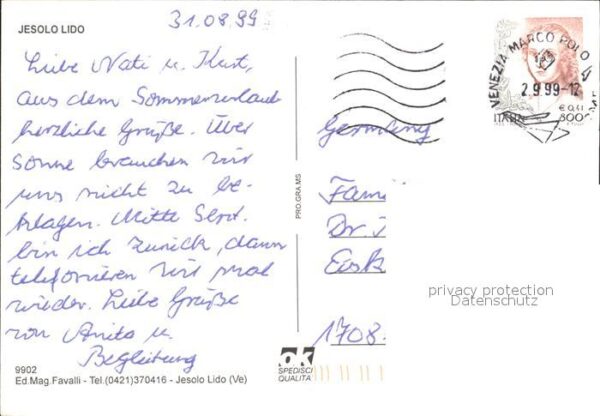 JESOLO LIDO
31.08.99
Liebe Nati u. Kurt,
aus dem Sommerurlaub
herzliche Grüße. Über
Sonne brauchen wir
uns nicht zu be-
klagen. Mitte Sept.
bin ich zurück, dann
telefonieren wir mal
wieder. Liebe Grüße
von Anita u.
Begleitung
VENEZIA MARCO POLO
2.9.99-12
ITALIA
€ 0,41
800
PRO.GRA.MS
Germany
Fami
Dr.
1708
privacy protection
Datenschutz
ok
SPEDISCI
QUALITÀ
9902
Ed.Mag.Favalli - Tel.(0421)370416 - Jesolo Lido (Ve)